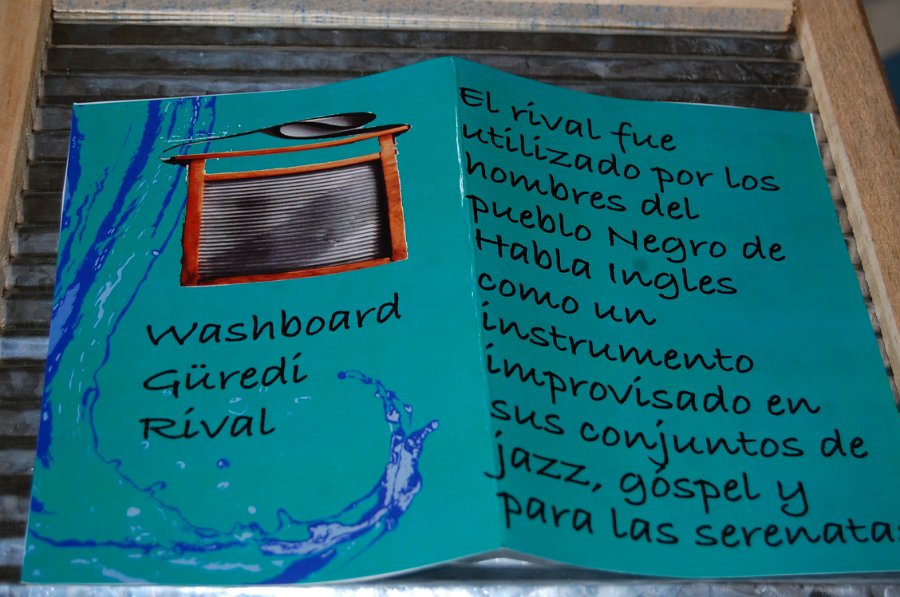 Washboard
Güredi
Rival
El rival fue
utilizado por los
hombres del
pueblo Negro de
Habla Ingles
como un
instrumento
improvisado en
sus conjuntos de
jazz, góspel y
para las serenatas